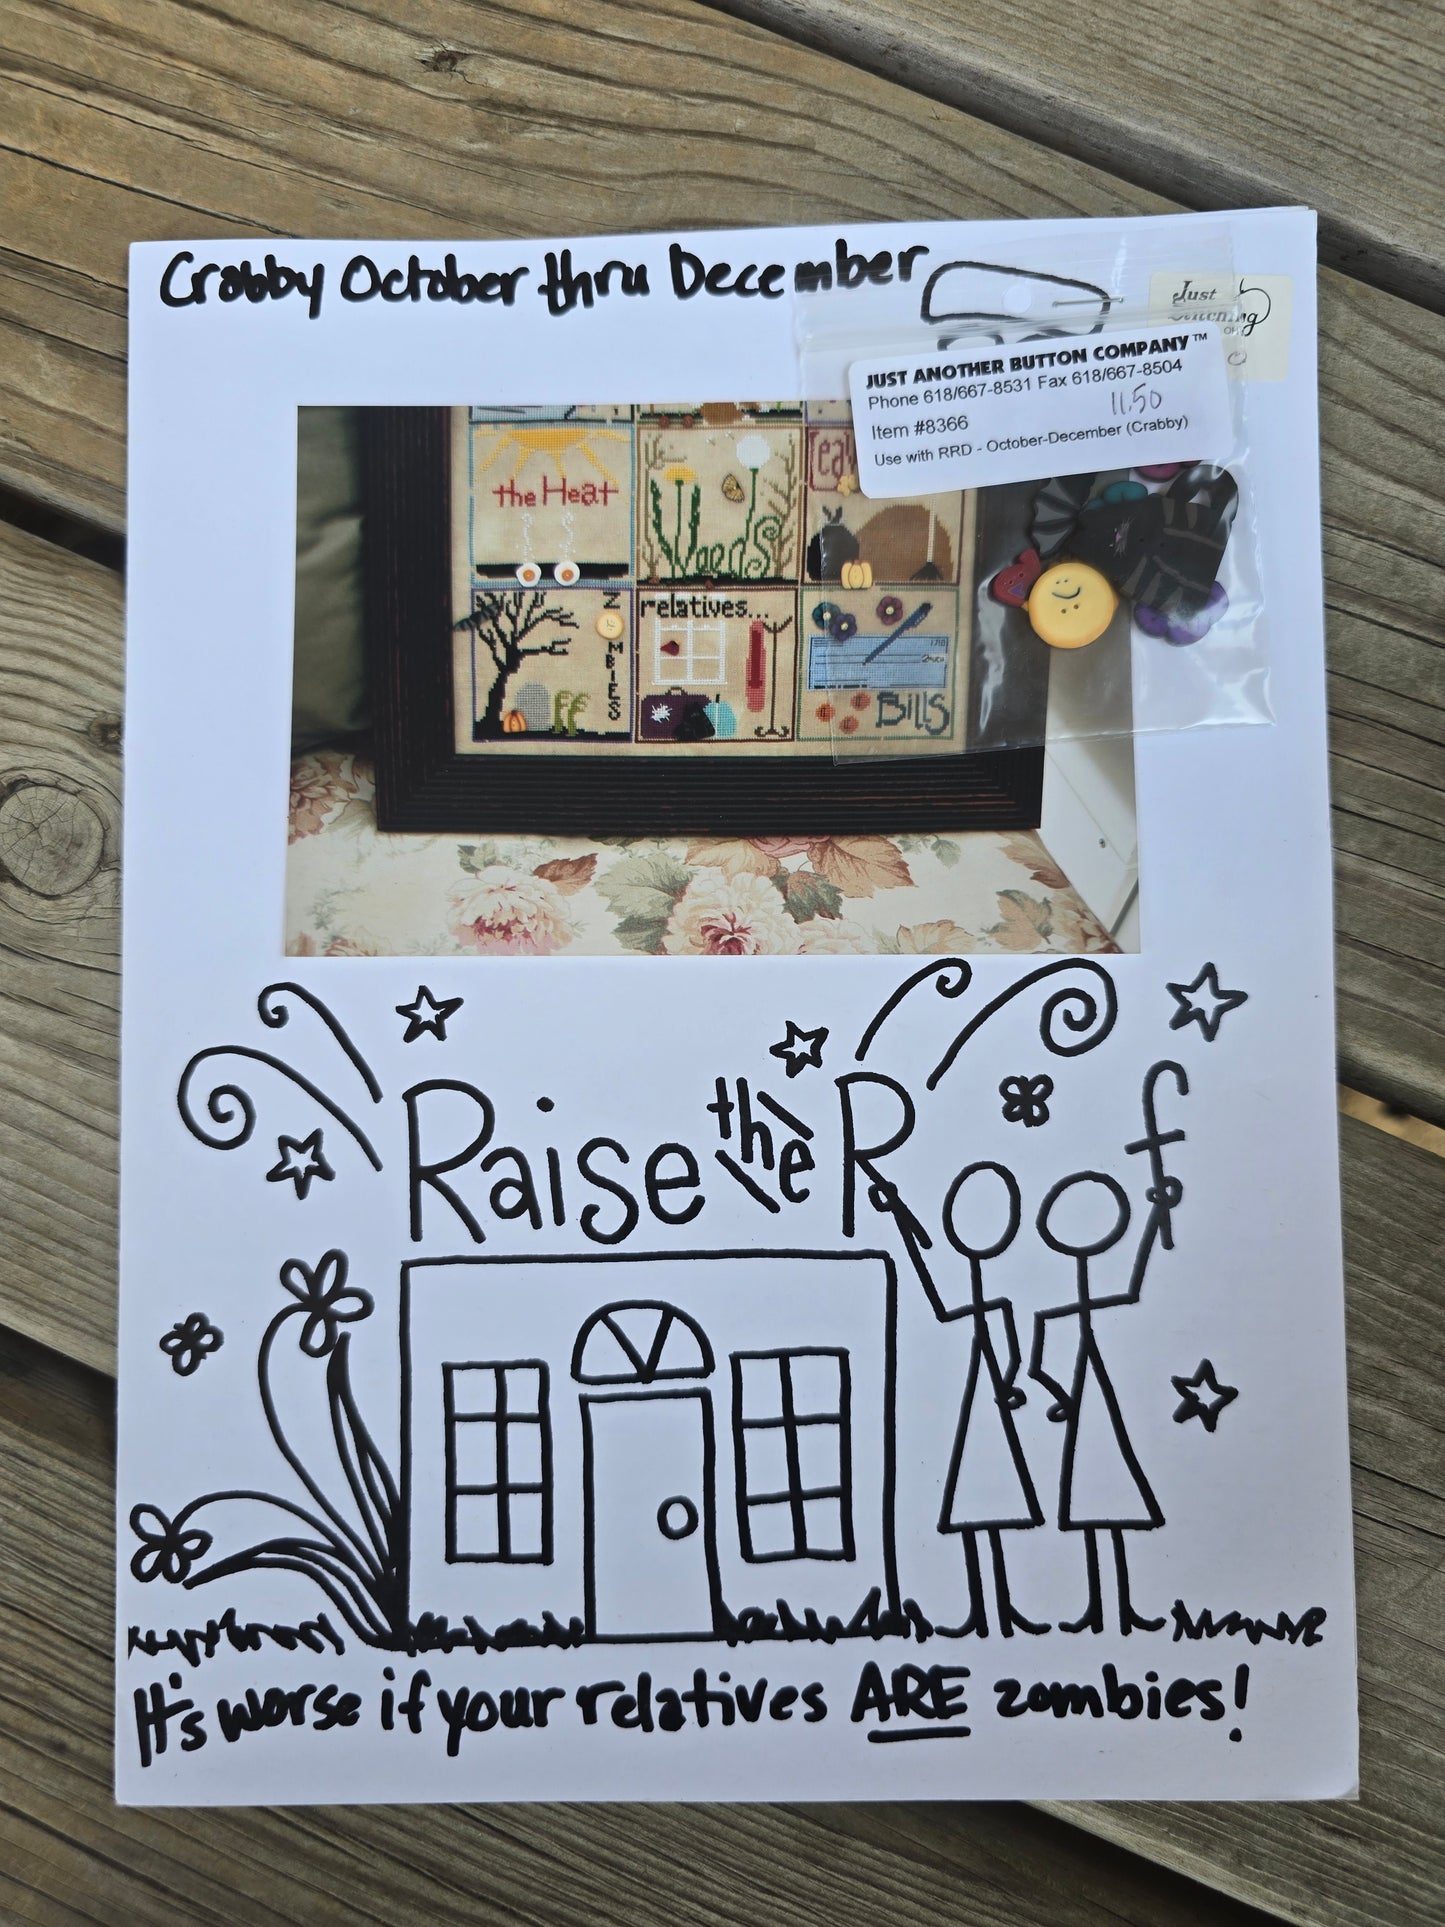 Crabby October thru December
Just
Stitching
JUST ANOTHER BUTTON COMPANY™
Phone 618/667-8531 Fax 618/667-8504
11.50
Item #8366
Use with RRD - October-December (Crabby)
the Heat
Weeds
Leav
ZOMBIES
relatives...
BILLS
Raise the Roof
It's worse if your relatives ARE zombies!